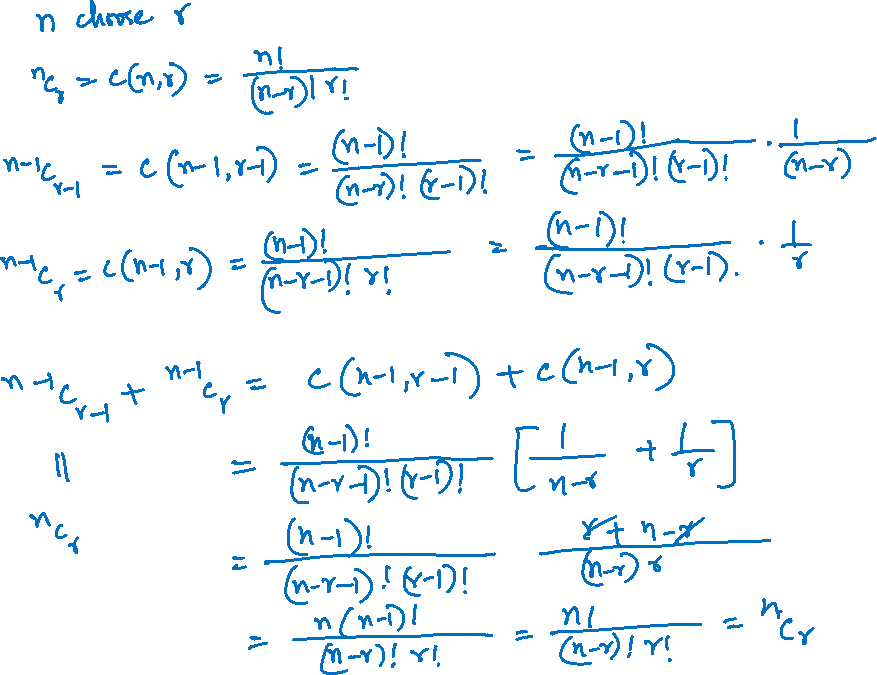 n choose r
ⁿCᵣ = C(n,r) = n! / (n-r)! r!
ⁿ⁻¹Cᵣ₋₁ = C(n-1,r-1) = (n-1)! / (n-r)! (r-1)! = (n-1)! / (n-r-1)! (r-1)! · 1 / (n-r)
ⁿ⁻¹Cᵣ = C(n-1,r) = (n-1)! / (n-r-1)! r! = (n-1)! / (n-r-1)! (r-1). · 1 / r
ⁿ⁻¹Cᵣ₋₁ + ⁿ⁻¹Cᵣ = C(n-1,r-1) + C(n-1,r)
|| = (n-1)! / (n-r-1)! (r-1)! [1 / n-r + 1 / r]
ⁿCᵣ = (n-1)! / (n-r-1)! (r-1)! r + n-r / (n-r) r
= n(n-1)! / (n-r)! r! = n! / (n-r)! r! = ⁿCᵣ